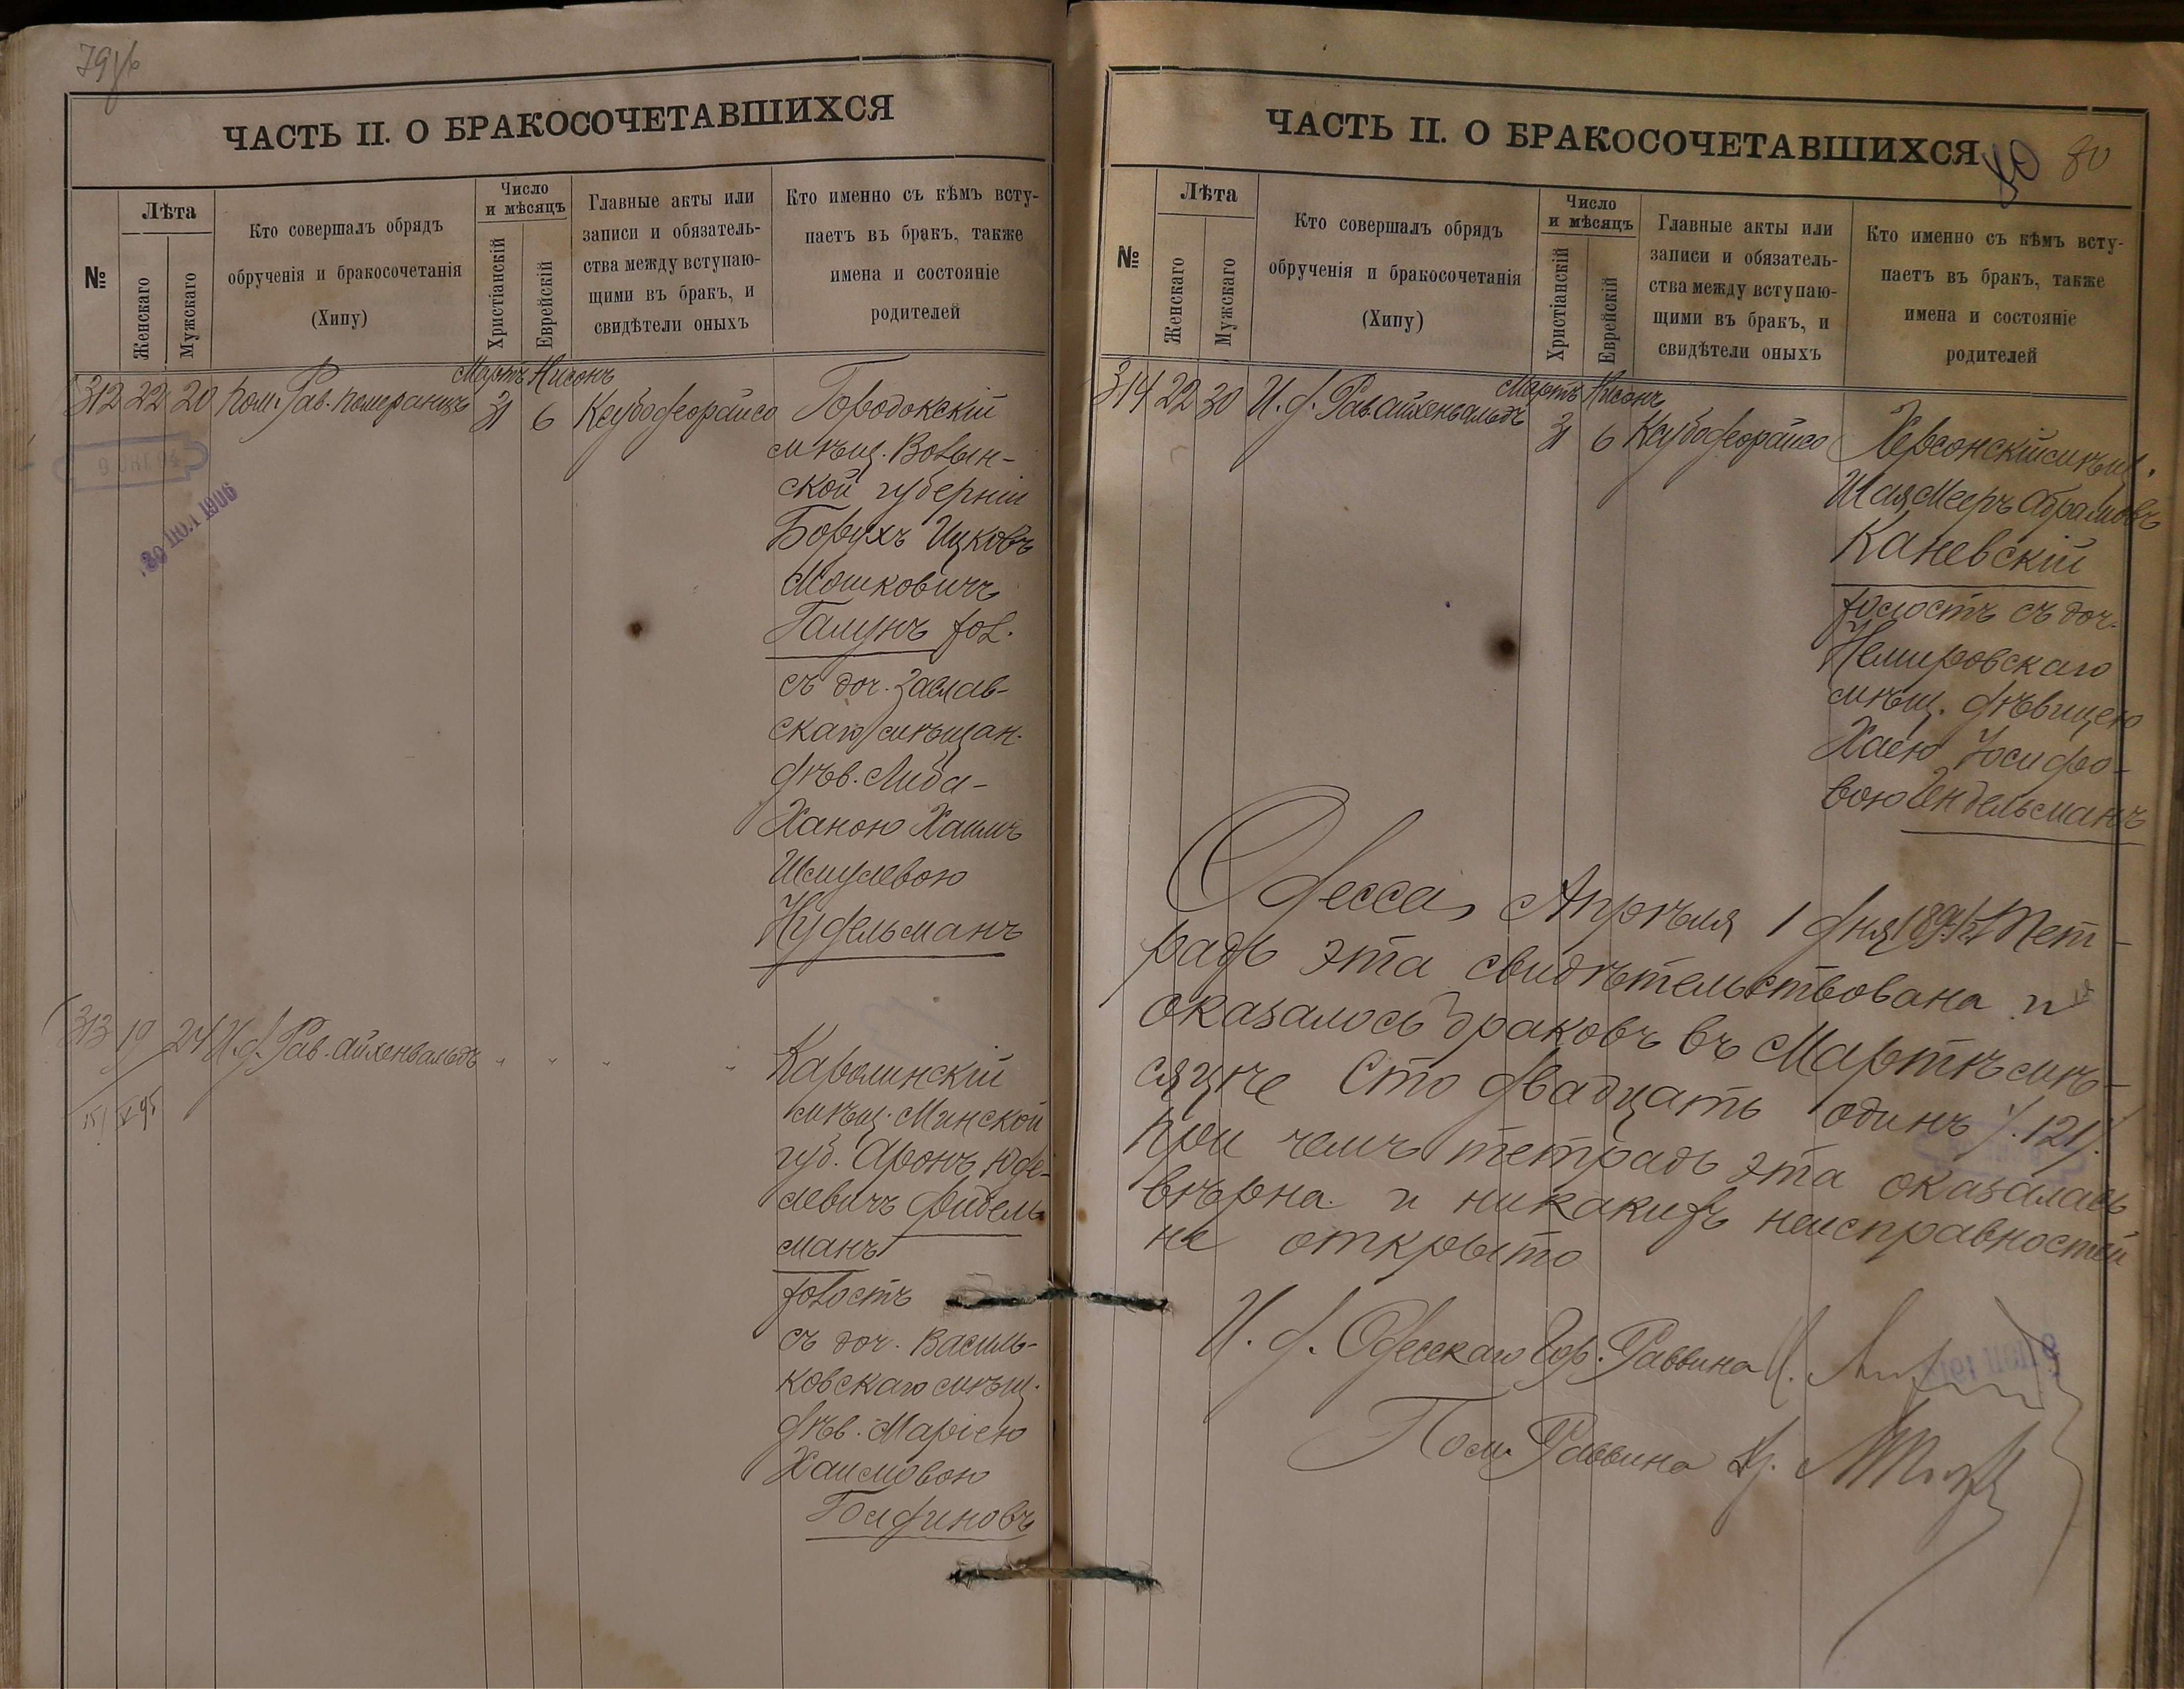 79об
ЧАСТЬ II. О БРАКОСОЧЕТАВШИХСЯ
№
Лѣта
Женскаго
Мужскаго
Кто совершалъ обрядъ
обрученія и бракосочетанія
(Хипу)
Число
и мѣсяцъ
Христіанскій
Еврейскій
Главные акты или
записи и обязатель-
ства между вступаю-
щими въ бракъ, и
свидѣтели оныхъ
Кто именно съ кѣмъ всту-
паетъ въ бракъ, также
имена и состояніе
родителей
Мартъ Нисонъ
312 22 20 Пом. Рав. Померанцъ 31 6 Ксубофеорайсо Городокскій
мѣщ. Волын-
ской губерніи
Борухъ Ицковъ
Мошковичъ
Галунъ хол.
съ доч. Заслав-
скаго мѣщан.
дѣв. Либа-
Ханою Хаимъ
Шмулевою
Нудельманъ
30 ІЮЛ 1906
313 19 24 И. д. Рав. Айхенвальдъ " " " " Каролинскій
мѣщ. Минской
губ. Аронъ Юде-
левичъ Фидель
манъ
холостъ
съ доч. Василь-
ковскаго мѣщ.
дѣв. Маріею
Хаимовою
Голфиновъ
80
ЧАСТЬ II. О БРАКОСОЧЕТАВШИХСЯ
№
Лѣта
Женскаго
Мужскаго
Кто совершалъ обрядъ
обрученія и бракосочетанія
(Хипу)
Число
и мѣсяцъ
Христіанскій
Еврейскій
Главные акты или
записи и обязатель-
ства между вступаю-
щими въ бракъ, и
свидѣтели оныхъ
Кто именно съ кѣмъ всту-
паетъ въ бракъ, также
имена и состояніе
родителей
Мартъ Нисонъ
314 22 30 И. д. Рав. Айхенвальдъ 31 6 Ксубофеорайсо Херсонскій мѣщ.
Шая Мееръ Абрамовъ
Каневскій
холостъ съ доч.
Немировскаго
мѣщ. дѣвицею
Хаею Іосифо-
вою Ендельсманъ
Одесса, Апрѣля 1 дня Тет-
радь эта свидѣтельствована и
оказалось браковъ въ Мартѣ мѣ-
сяцѣ Сто двадцать одинъ /121/.
при чемъ тетрадь эта оказалась
вѣрна и никакихъ неисправностей
не открыто
И. д. Одесскаго Гор. Раввина
Пом. Раввина